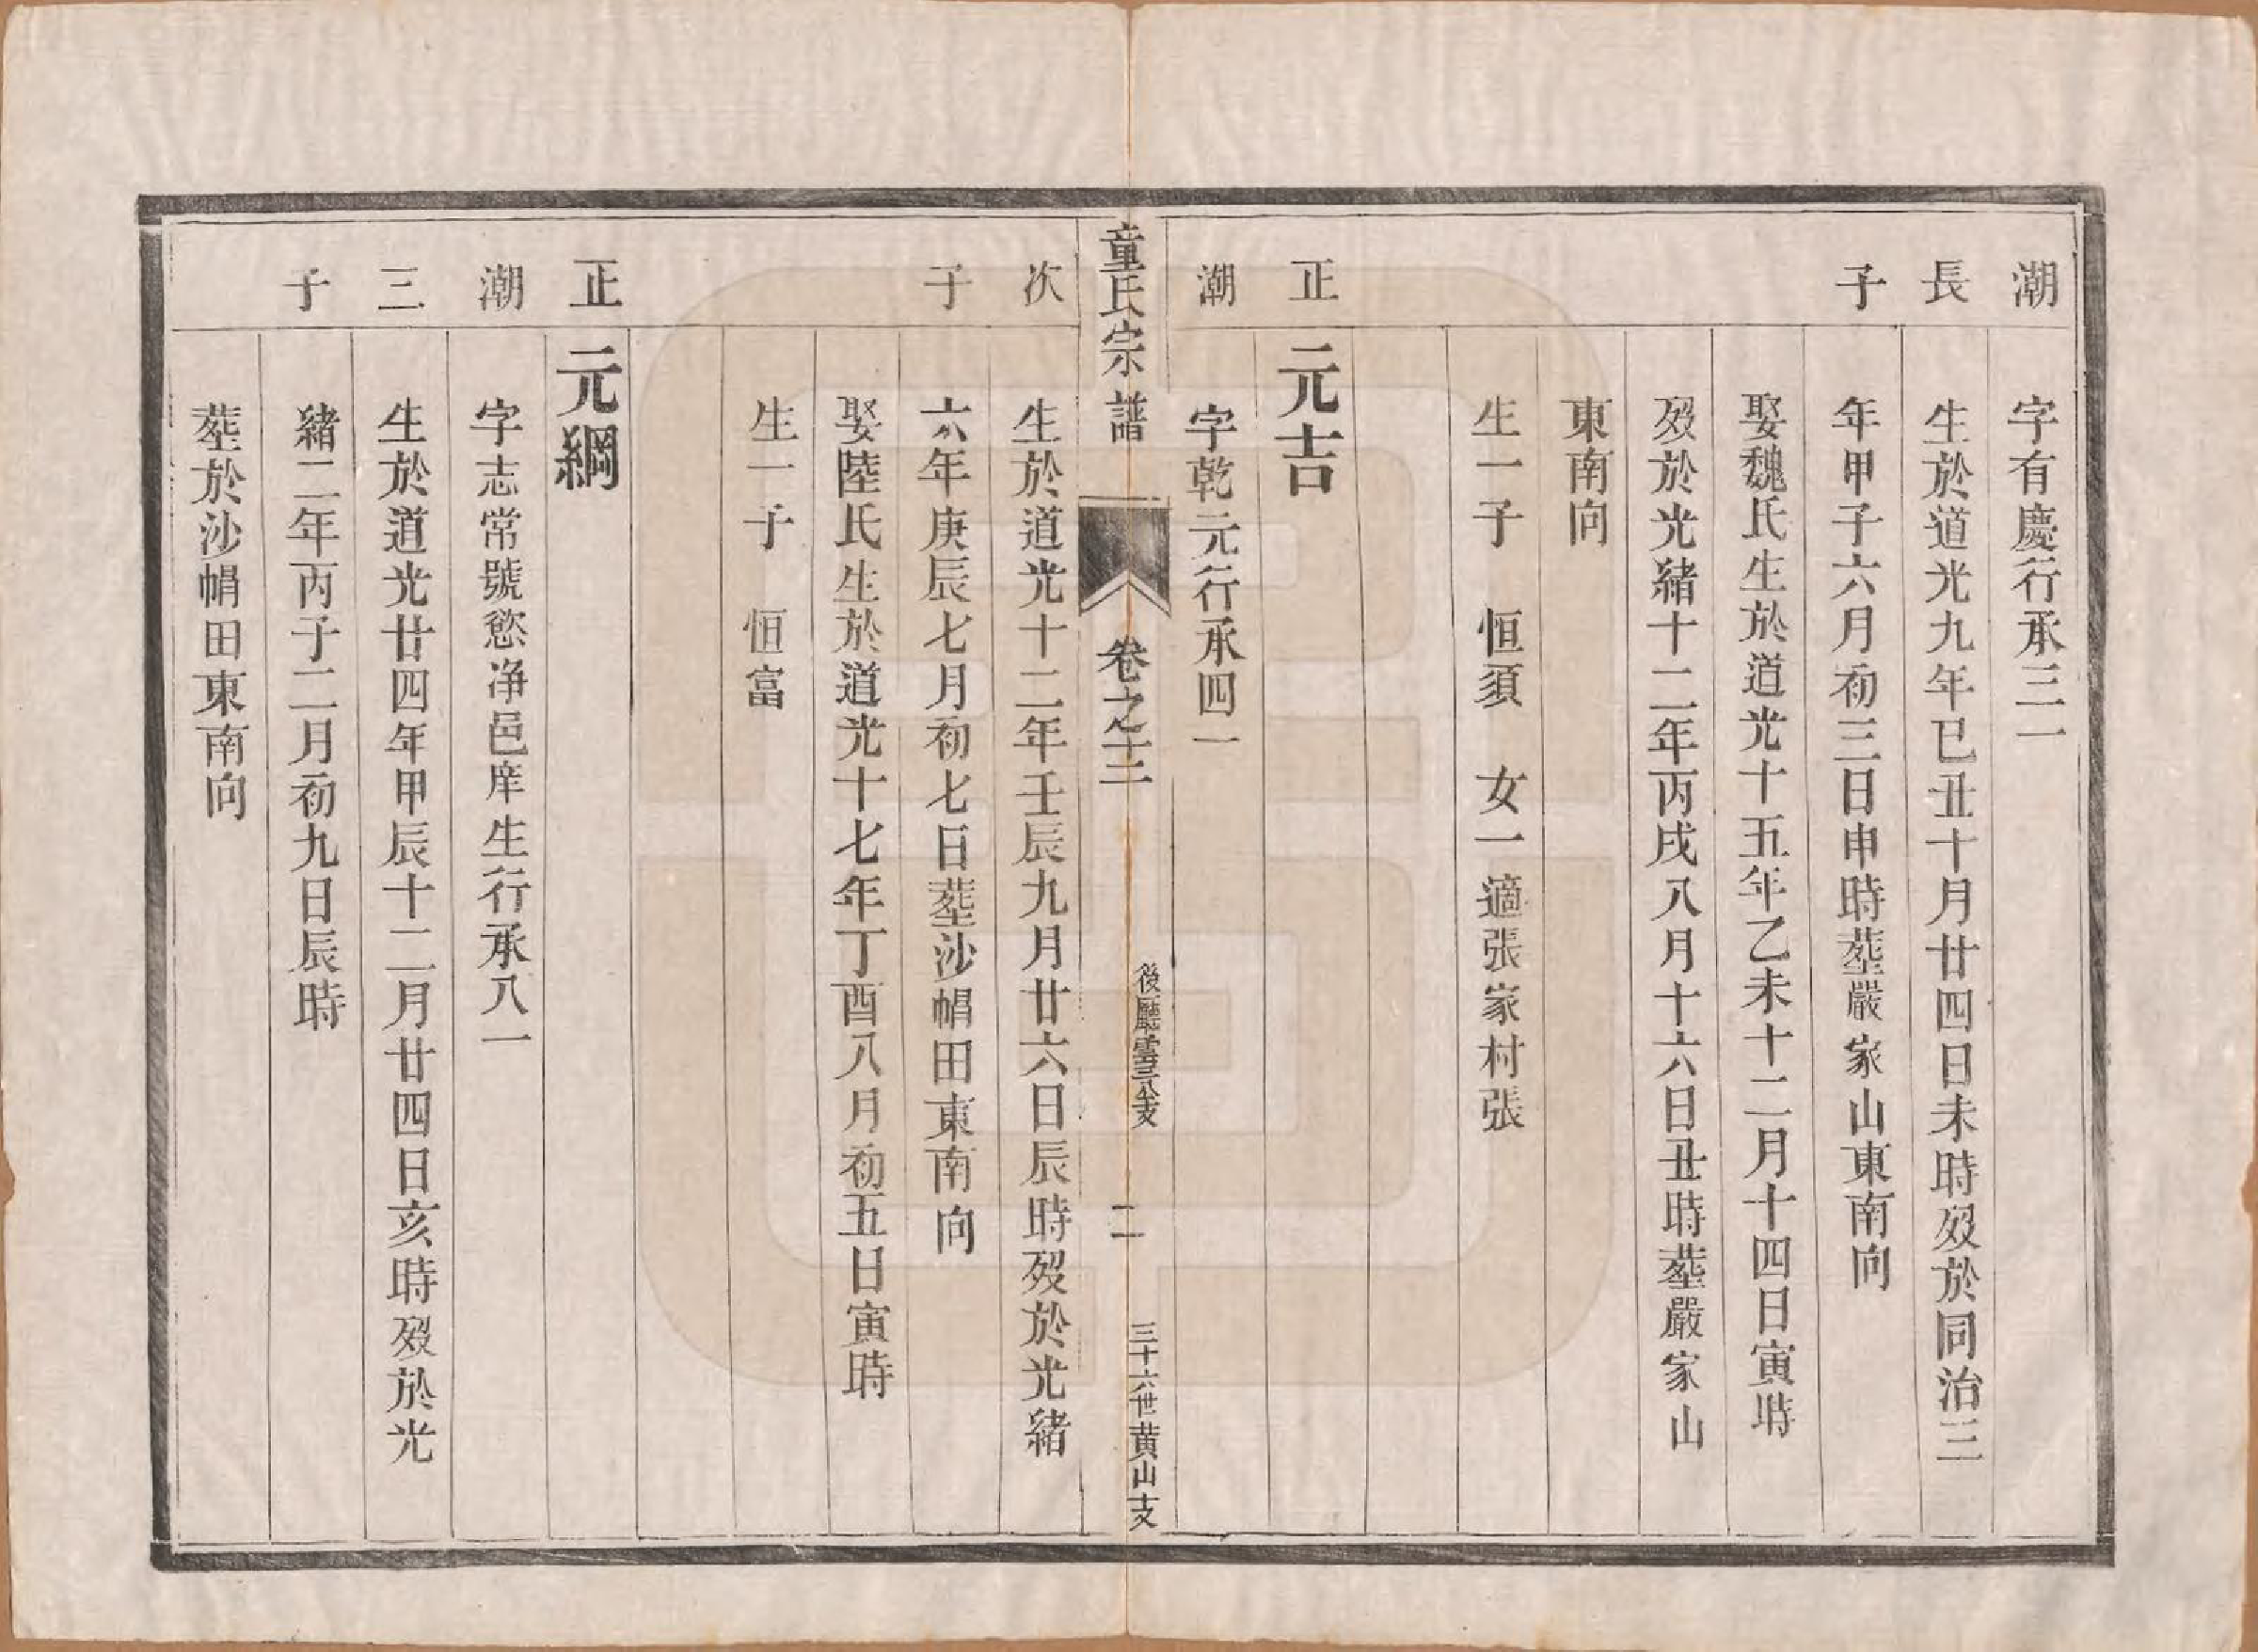 潮 字有慶行承三一
長 生於道光九年已丑十月廿四日未時歿於同治三
子 年甲子六月初三日申時塟嚴家山東南向
娶魏氏生於道光十五年乙未十二月十四日寅時
歿於光緒十二年丙戌八月十六日丑時塟嚴家山
東南向
生一子 恒須 女一適張家村張
正 元吉
潮 字乾元行承四一
童氏宗譜 卷之十二 後廳雲三公支 二 三十六世黄山支
次 生於道光十二年壬辰九月廿六日辰時歿於光緒
子 六年庚辰七月初七日塟沙帽田東南向
娶陸氏生於道光十七年丁酉八月初五日寅時
生一子 恒富
正 元綱
潮 字志常號慾净邑庠生行承八一
三 生於道光廿四年甲辰十二月廿四日亥時歿於光
子 緒二年丙子二月初九日辰時
塟於沙帽田東南向